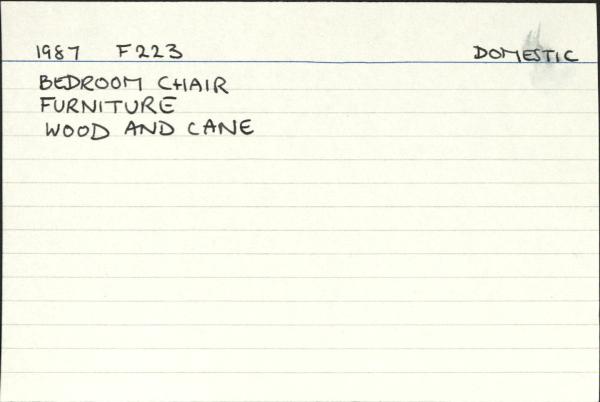 1987 F223 DOMESTIC
BEDROOM CHAIR
FURNITURE
WOOD AND CANE